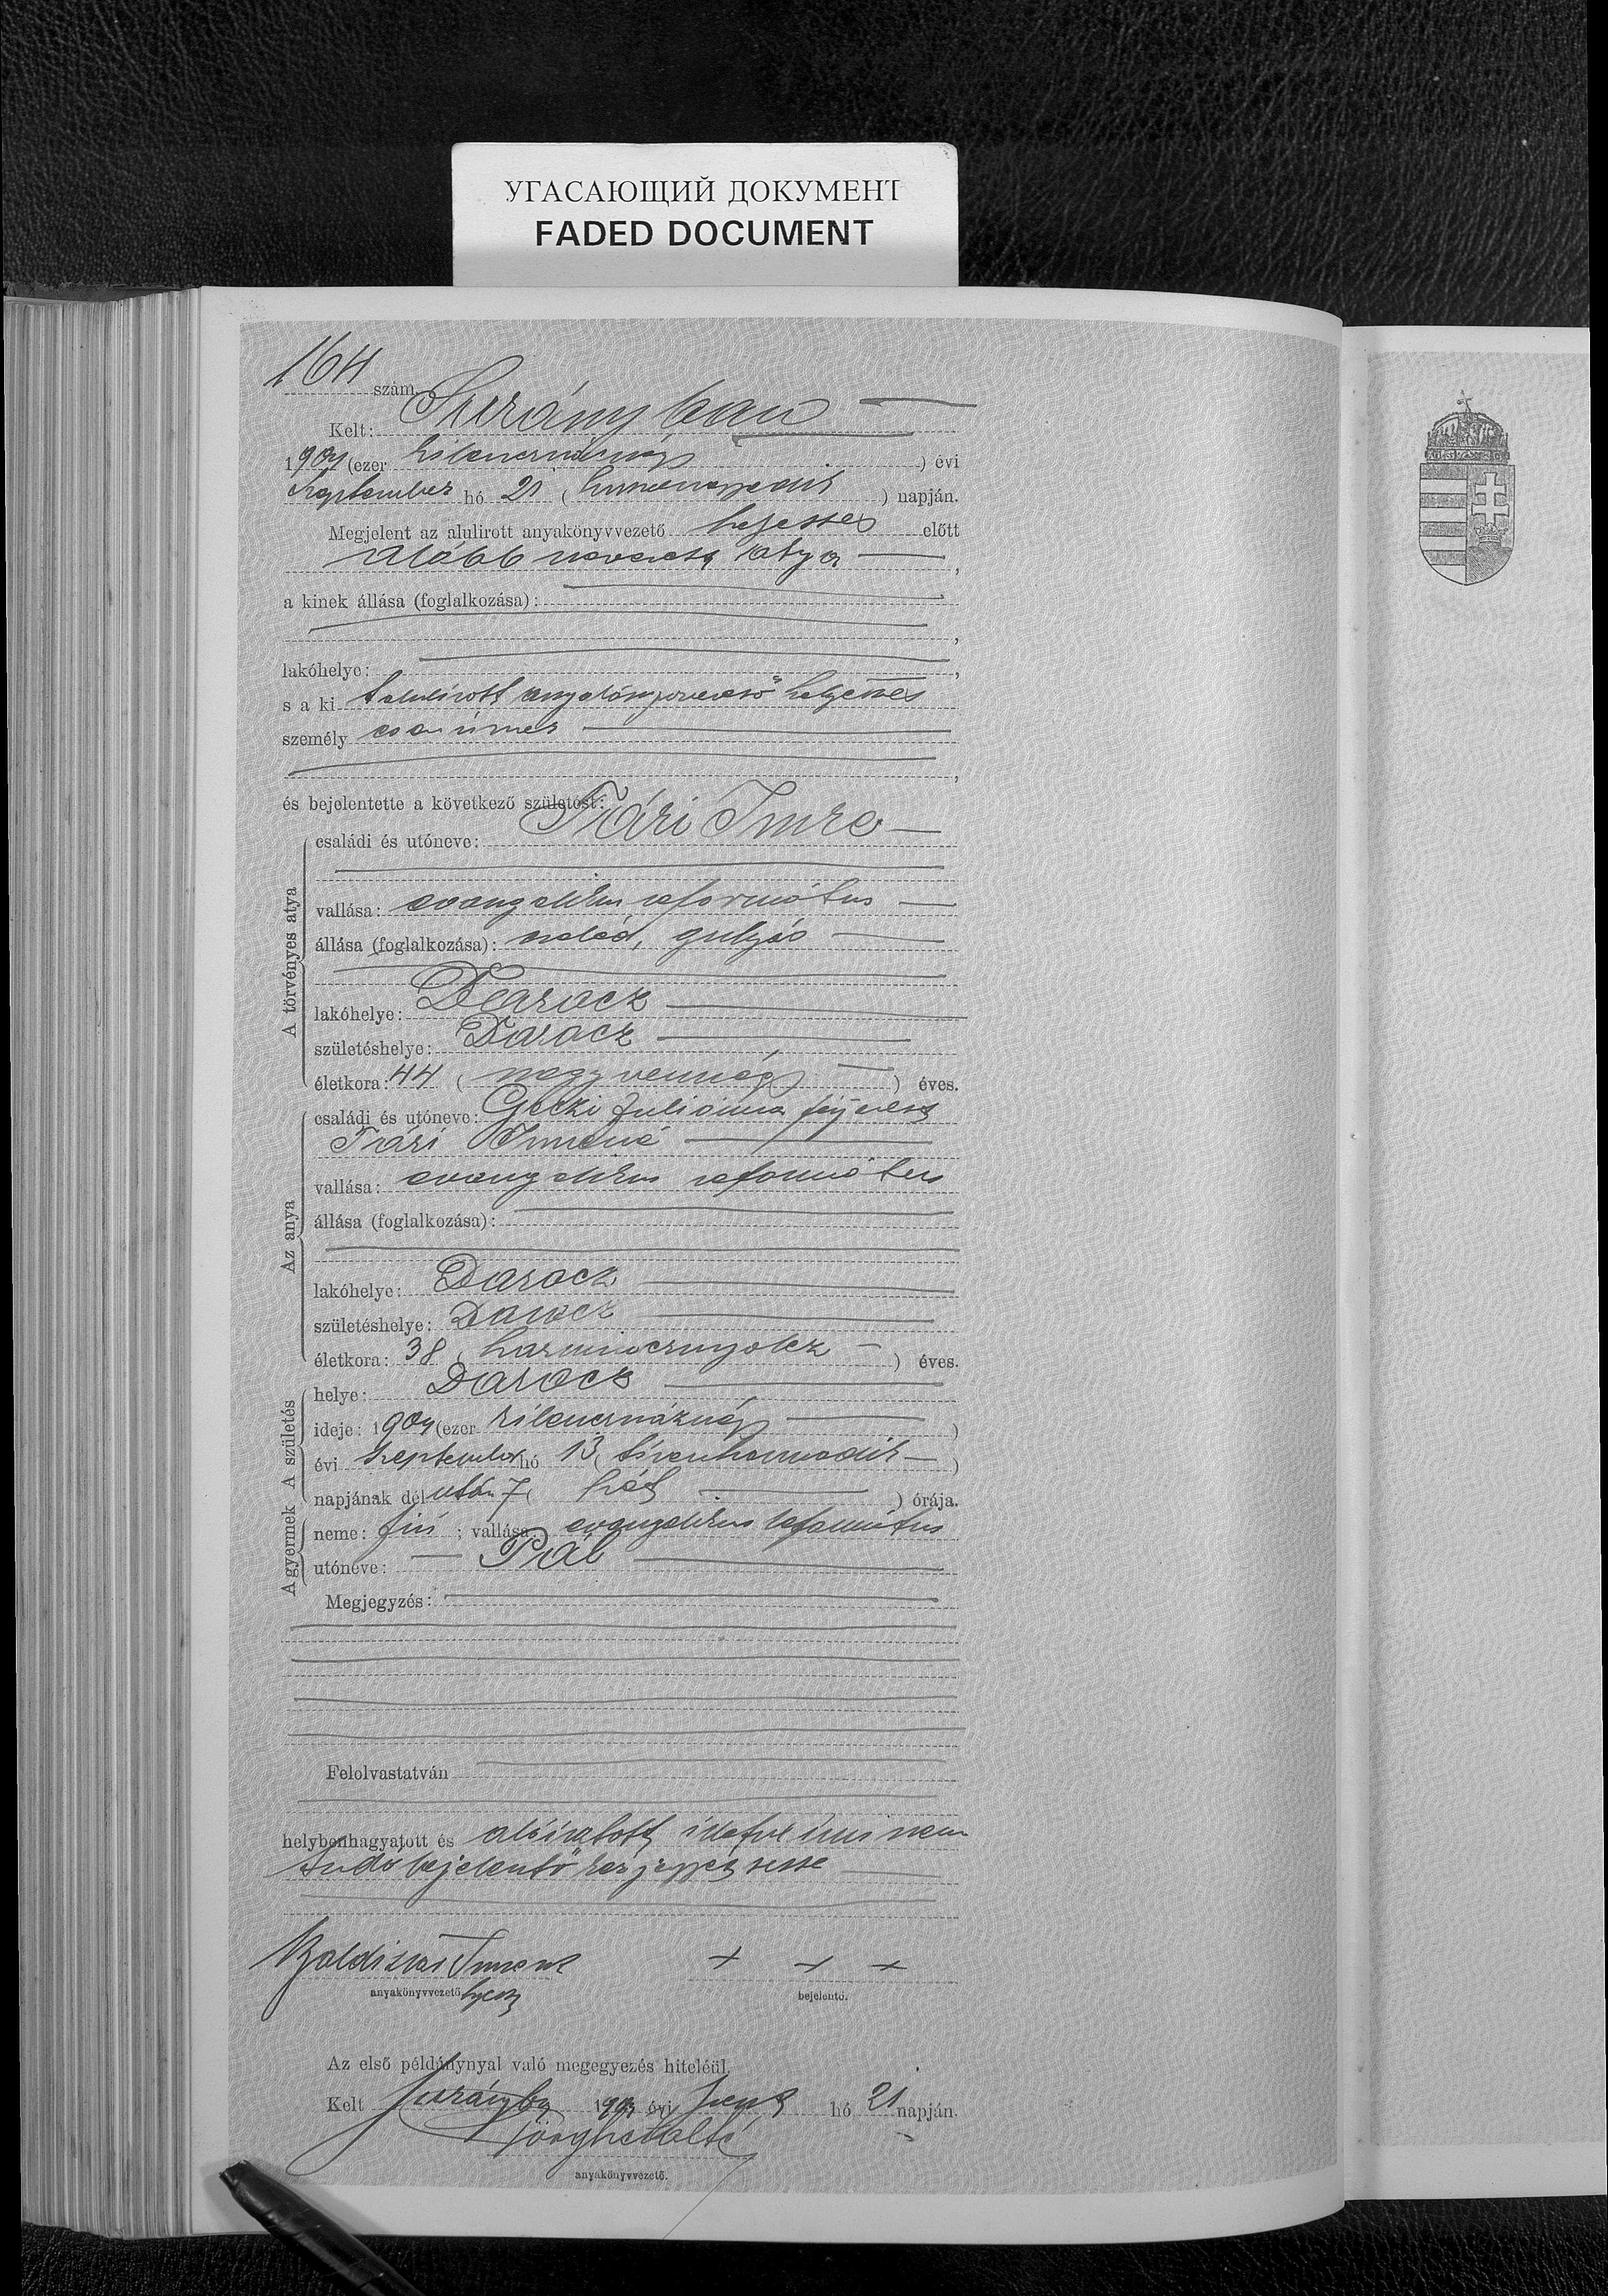 УГАСАЮЩИЙ ДОКУМЕНТ
FADED DOCUMENT
164 szám.
Kelt: Surányban
1904 (ezer kilencznégy) évi
September hó 21 (huszonegyedik) napján.
Megjelent az alulirott anyakönyvvezető helyettes előtt
alább nevezett atya,
a kinek állása (foglalkozása):
lakóhelye:
s a ki alulirott anyakönyvvezető helyettes
személy esen ismer
és bejelentette a következő születést:
A törvényes atya
családi és utóneve: Imre
vallása: evangelikus református
állása (foglalkozása): cseléd, gulyás
lakóhelye: Darócz
születéshelye: Darócz
életkora: 44 (negyvennégy) éves.
Az anya
családi és utóneve: Géczi Juliánna férjezett
Imréné
vallása: evangelikus református
állása (foglalkozása):
lakóhelye: Darócz
születéshelye: Darócz
életkora: 38 (harmincznyolcz) éves.
A születés
helye: Darócz
ideje: 1904 (ezer kilenczszáznégy)
évi September hó 13 (tizenharmadik)
napjának délután 7 (hét) órája.
A gyermek
neme: fiú; vallása: evangelikus református
utóneve: Pál
Megjegyzés:
Felolvastatván
helybenhagyatott és aláiratott, illetve irni nem
tudó bejelentő kézjegyével
Imréné
anyakönyvvezető
+ + +
bejelentő.
Az első példánynyal való megegyezés hiteléül.
Kelt 1904 évi Sept hó 21 napján.
anyakönyvvezető.